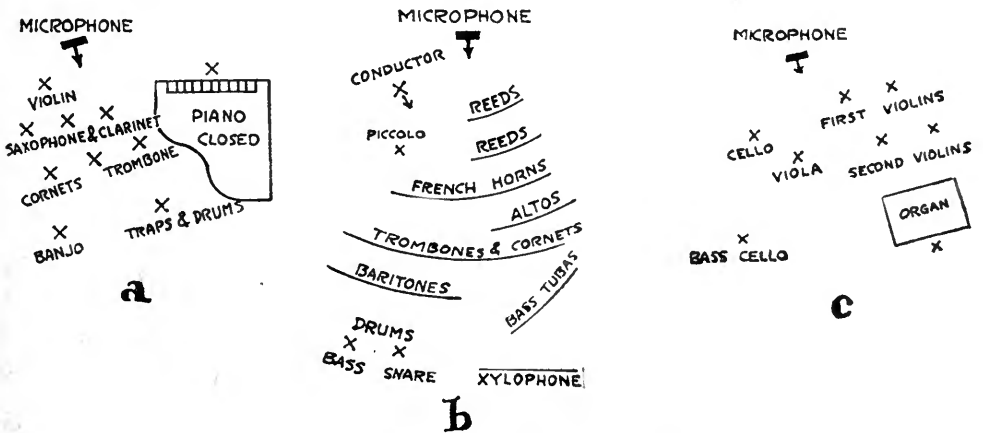 MICROPHONE
VIOLIN
SAXOPHONE & CLARINET
CORNETS
TROMBONE
PIANO
CLOSED
TRAPS & DRUMS
BANJO
a
MICROPHONE
CONDUCTOR
REEDS
PICCOLO
REEDS
FRENCH HORNS
ALTOS
TROMBONES & CORNETS
BARITONES
BASS TUBAS
DRUMS
BASS
SNARE
XYLOPHONE
b
MICROPHONE
FIRST VIOLINS
CELLO
VIOLA
SECOND VIOLINS
ORGAN
BASS CELLO
c